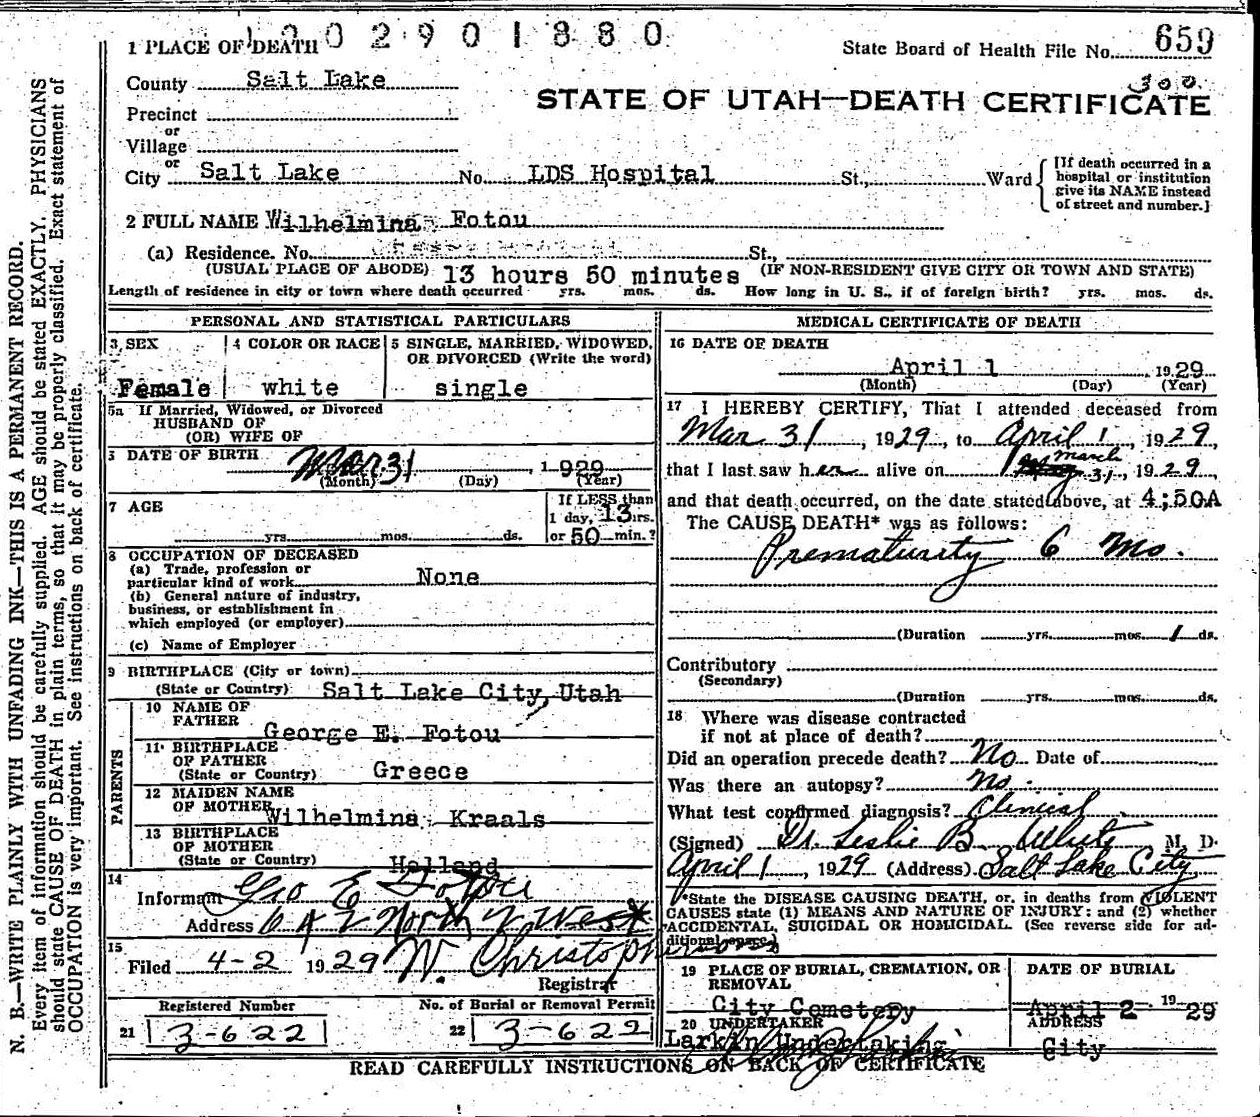 1 PLACE OF DEATH 1 2 0 2 9 0 1 8 8 0
State Board of Health File No. 659
County Salt Lake
300
STATE OF UTAH—DEATH CERTIFICATE
Precinct
or
Village
or
City Salt Lake No. LDS Hospital St., Ward
[If death occurred in a
hospital or institution
give its NAME instead
of street and number.]
2 FULL NAME Wilhelmina Fotou
(a) Residence. No. St.,
(USUAL PLACE OF ABODE) 13 hours 50 minutes (IF NON-RESIDENT GIVE CITY OR TOWN AND STATE)
Length of residence in city or town where death occurred yrs. mos. ds. How long in U. S., if of foreign birth? yrs. mos. ds.
PERSONAL AND STATISTICAL PARTICULARS
3 SEX
Female
4 COLOR OR RACE
white
5 SINGLE, MARRIED, WIDOWED,
OR DIVORCED (Write the word)
single
5a If Married, Widowed, or Divorced
HUSBAND OF
(OR) WIFE OF
DATE OF BIRTH Mar. 31, 1929
(Month) (Day) (Year)
7 AGE
yrs. mos. ds.
If LESS than
1 day, 13 hrs.
or 50 min.?
8 OCCUPATION OF DECEASED
(a) Trade, profession or
particular kind of work None
(b) General nature of industry,
business, or establishment in
which employed (or employer)
(c) Name of Employer
9 BIRTHPLACE (City or town)
(State or Country) Salt Lake City, Utah
PARENTS
10 NAME OF
FATHER
George E. Fotou
11 BIRTHPLACE
OF FATHER
(State or Country) Greece
12 MAIDEN NAME
OF MOTHER
Wilhelmina Kraals
13 BIRTHPLACE
OF MOTHER
(State or Country) Holland
14
Informant Geo E Fotou
Address North West
15
Filed 4-2 1929 W. Christopherson
Registrar
Registered Number
21 3-622
No. of Burial or Removal Permit
22 3-622
MEDICAL CERTIFICATE OF DEATH
16 DATE OF DEATH
April 1 1929
(Month) (Day) (Year)
17 I HEREBY CERTIFY, That I attended deceased from
Mar 31, 1929, to April 1, 1929,
that I last saw her alive on March 31, 1929,
and that death occurred, on the date stated above, at 4;50A
The CAUSE DEATH* was as follows:
Prematurity 6 Mo.
(Duration yrs. mos. 1 ds.
Contributory
(Secondary)
(Duration yrs. mos. ds.
18 Where was disease contracted
if not at place of death?
Did an operation precede death? No Date of
Was there an autopsy? No.
What test confirmed diagnosis? Clinical
(Signed) Dr. Leslie B. M. D.
April 1, 1929 (Address) Salt Lake City
*State the DISEASE CAUSING DEATH, or, in deaths from VIOLENT
CAUSES state (1) MEANS AND NATURE OF INJURY: and (2) whether
ACCIDENTAL, SUICIDAL OR HOMICIDAL. (See reverse side for ad-
ditional space.)
19 PLACE OF BURIAL, CREMATION, OR
REMOVAL
City Cemetery
DATE OF BURIAL
April 2 1929
20 UNDERTAKER
Larkin Undertaking
ADDRESS
City
READ CAREFULLY INSTRUCTIONS ON BACK OF CERTIFICATE
N. B.—WRITE PLAINLY WITH UNFADING INK—THIS IS A PERMANENT RECORD.
Every item of information should be carefully supplied. AGE should be stated EXACTLY. PHYSICIANS
should state CAUSE OF DEATH in plain terms, so that it may be properly classified. Exact statement of
OCCUPATION is very important. See instructions on back of certificate.